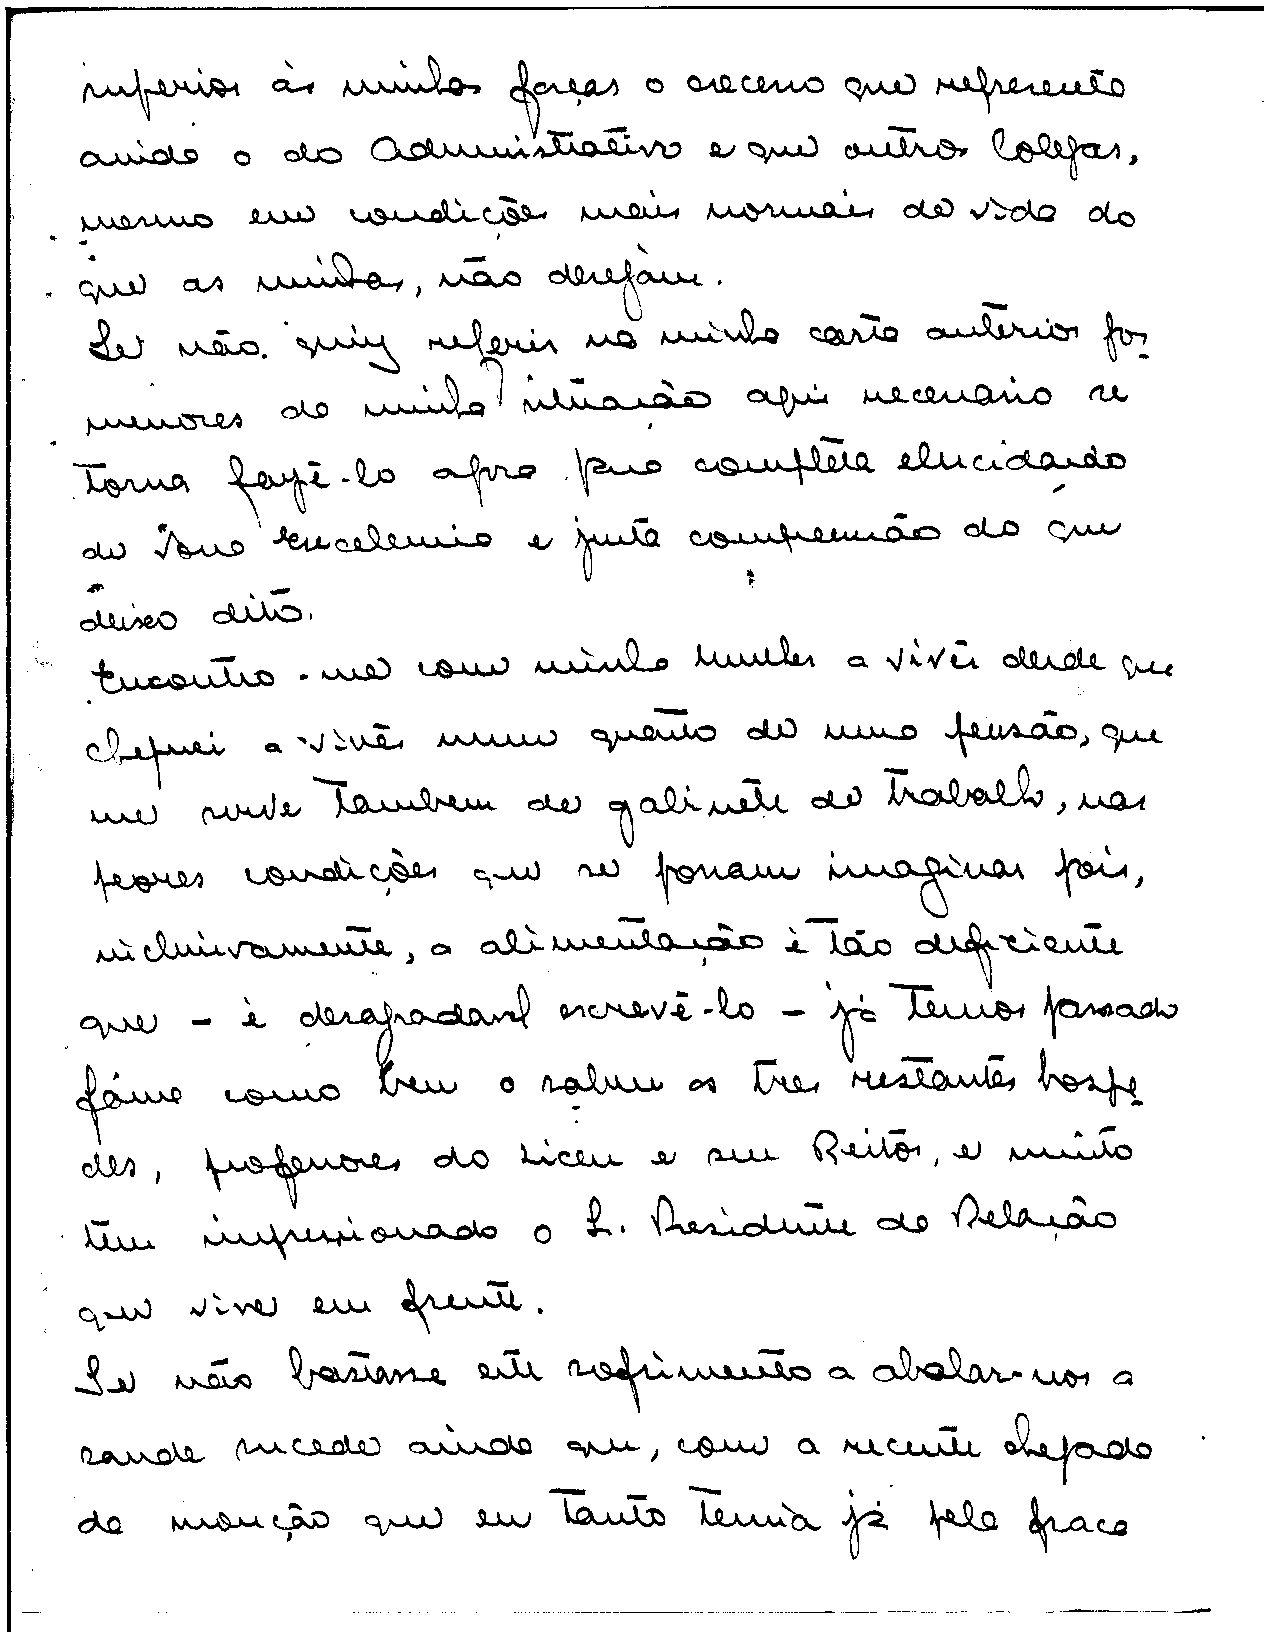 superior às minhas forças o acrescimo que representa
ainda o do Administrativo e que outros Colegas,
mesmo em condições mais normais de vida do
que as minhas, não desejam.
Se não quiz referir na minha carta anterior por
menores da minha situação aqui necessario se
torna fazê-lo agora para completa elucidação
de Vossa Excelencia e justa compreensão do que
deixo dito.
Encontro-me com minha mulher a viver desde que
cheguei a viver num quarto de uma pensão, que
me serve tambem de gabinete de trabalho, nas
peores condições que se possam imaginar pois,
inclusivamente, a alimentação é tão deficiente
que - é desagradavel escrevê-lo - já temos passado
fóme como bem o sabem os tres restantes hospe
des, professores do Liceu e seu Reitor, e muito
tem impressionado o S. Presidente da Relação
que vive em frente.
Se não bastasse este sofrimento a abalar-nos a
saude sucede ainda que, com a recente chegada
da monção que eu tanto temia já pela fraca